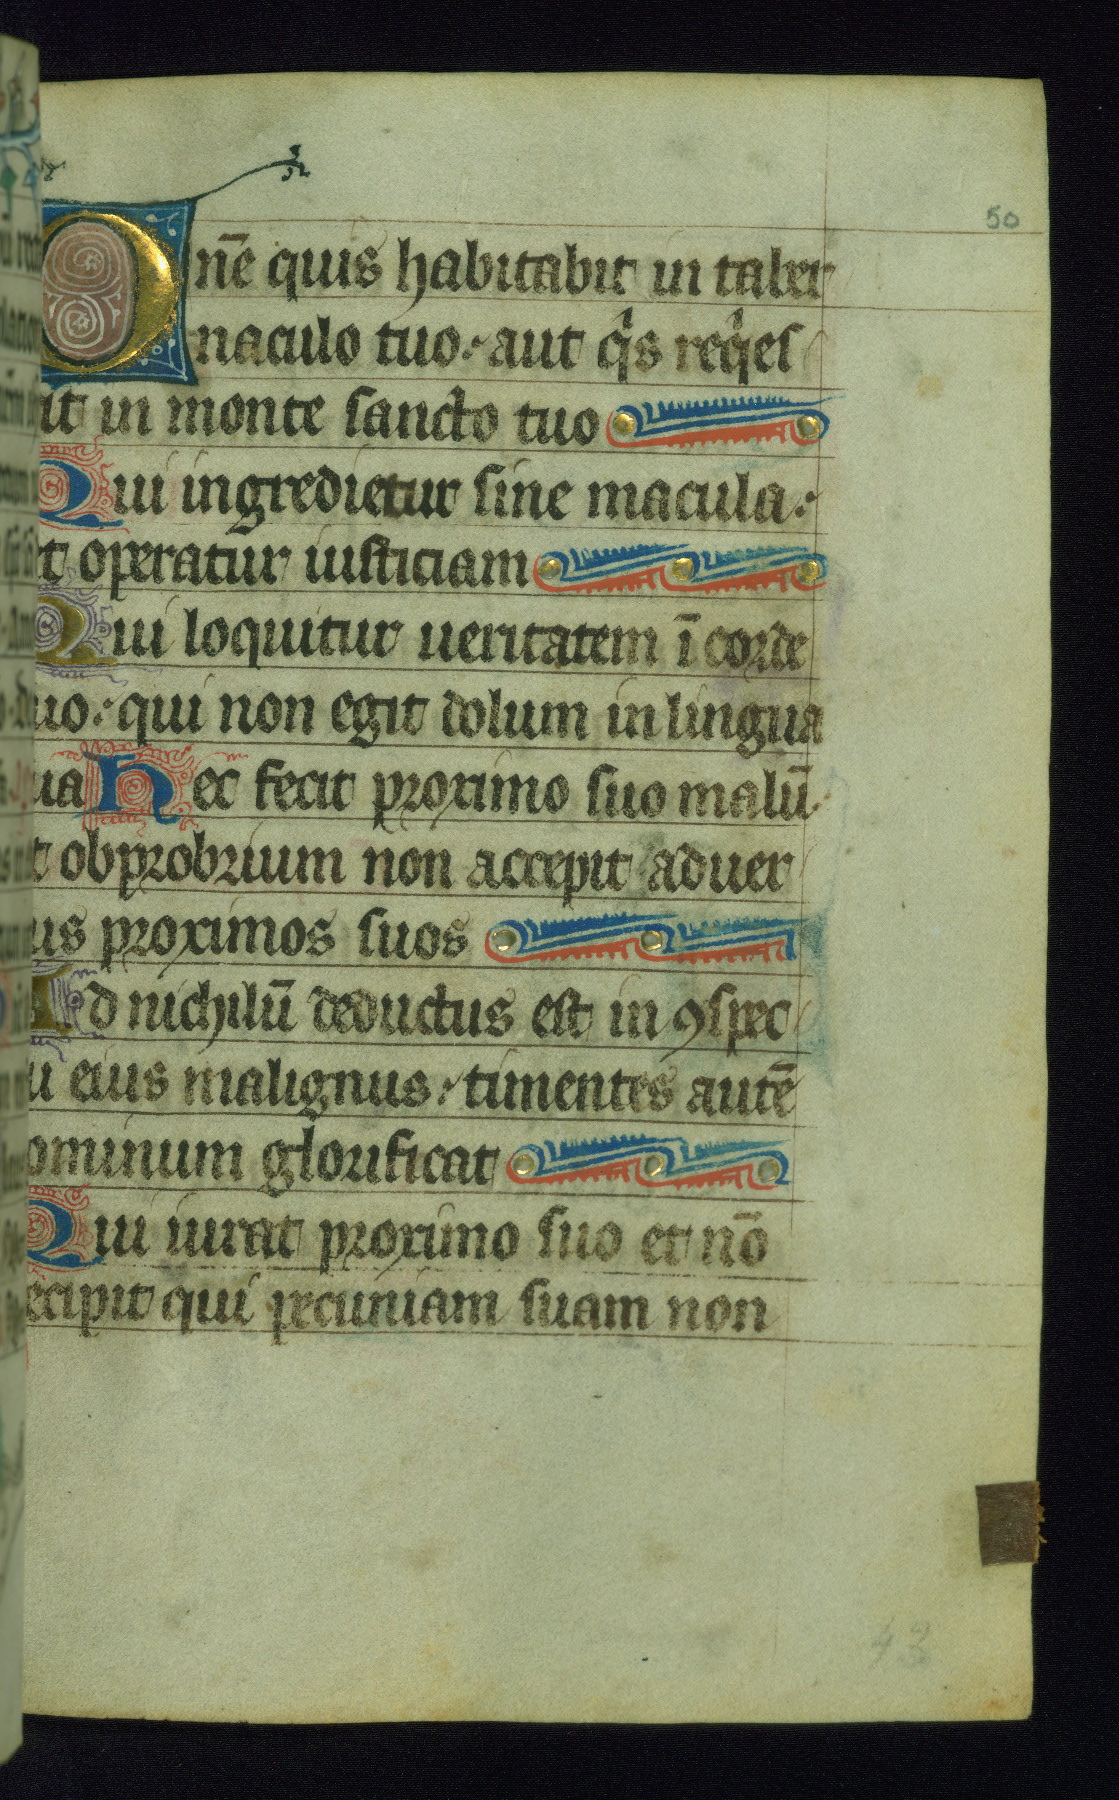 50
Dn̄e quis habitabit in taber
naculo tuo: aut qⁱs reqⁱes
it in monte sancto tuo
Qui ingredietur sine macula:
t operatur iusticiam
Qui loquitur ueritatem ī corde
uo: qui non egit dolum in lingua
ua Nec fecit proximo suo malū:
t obprobrium non accepit aduer
us proximos suos
Ad nichilū deductus est in ꝯspec
u eius malignus: timentes autē
ominum glorificat
Qui iurat proximo suo et nō
ecipit qui pecuniam suam non
43